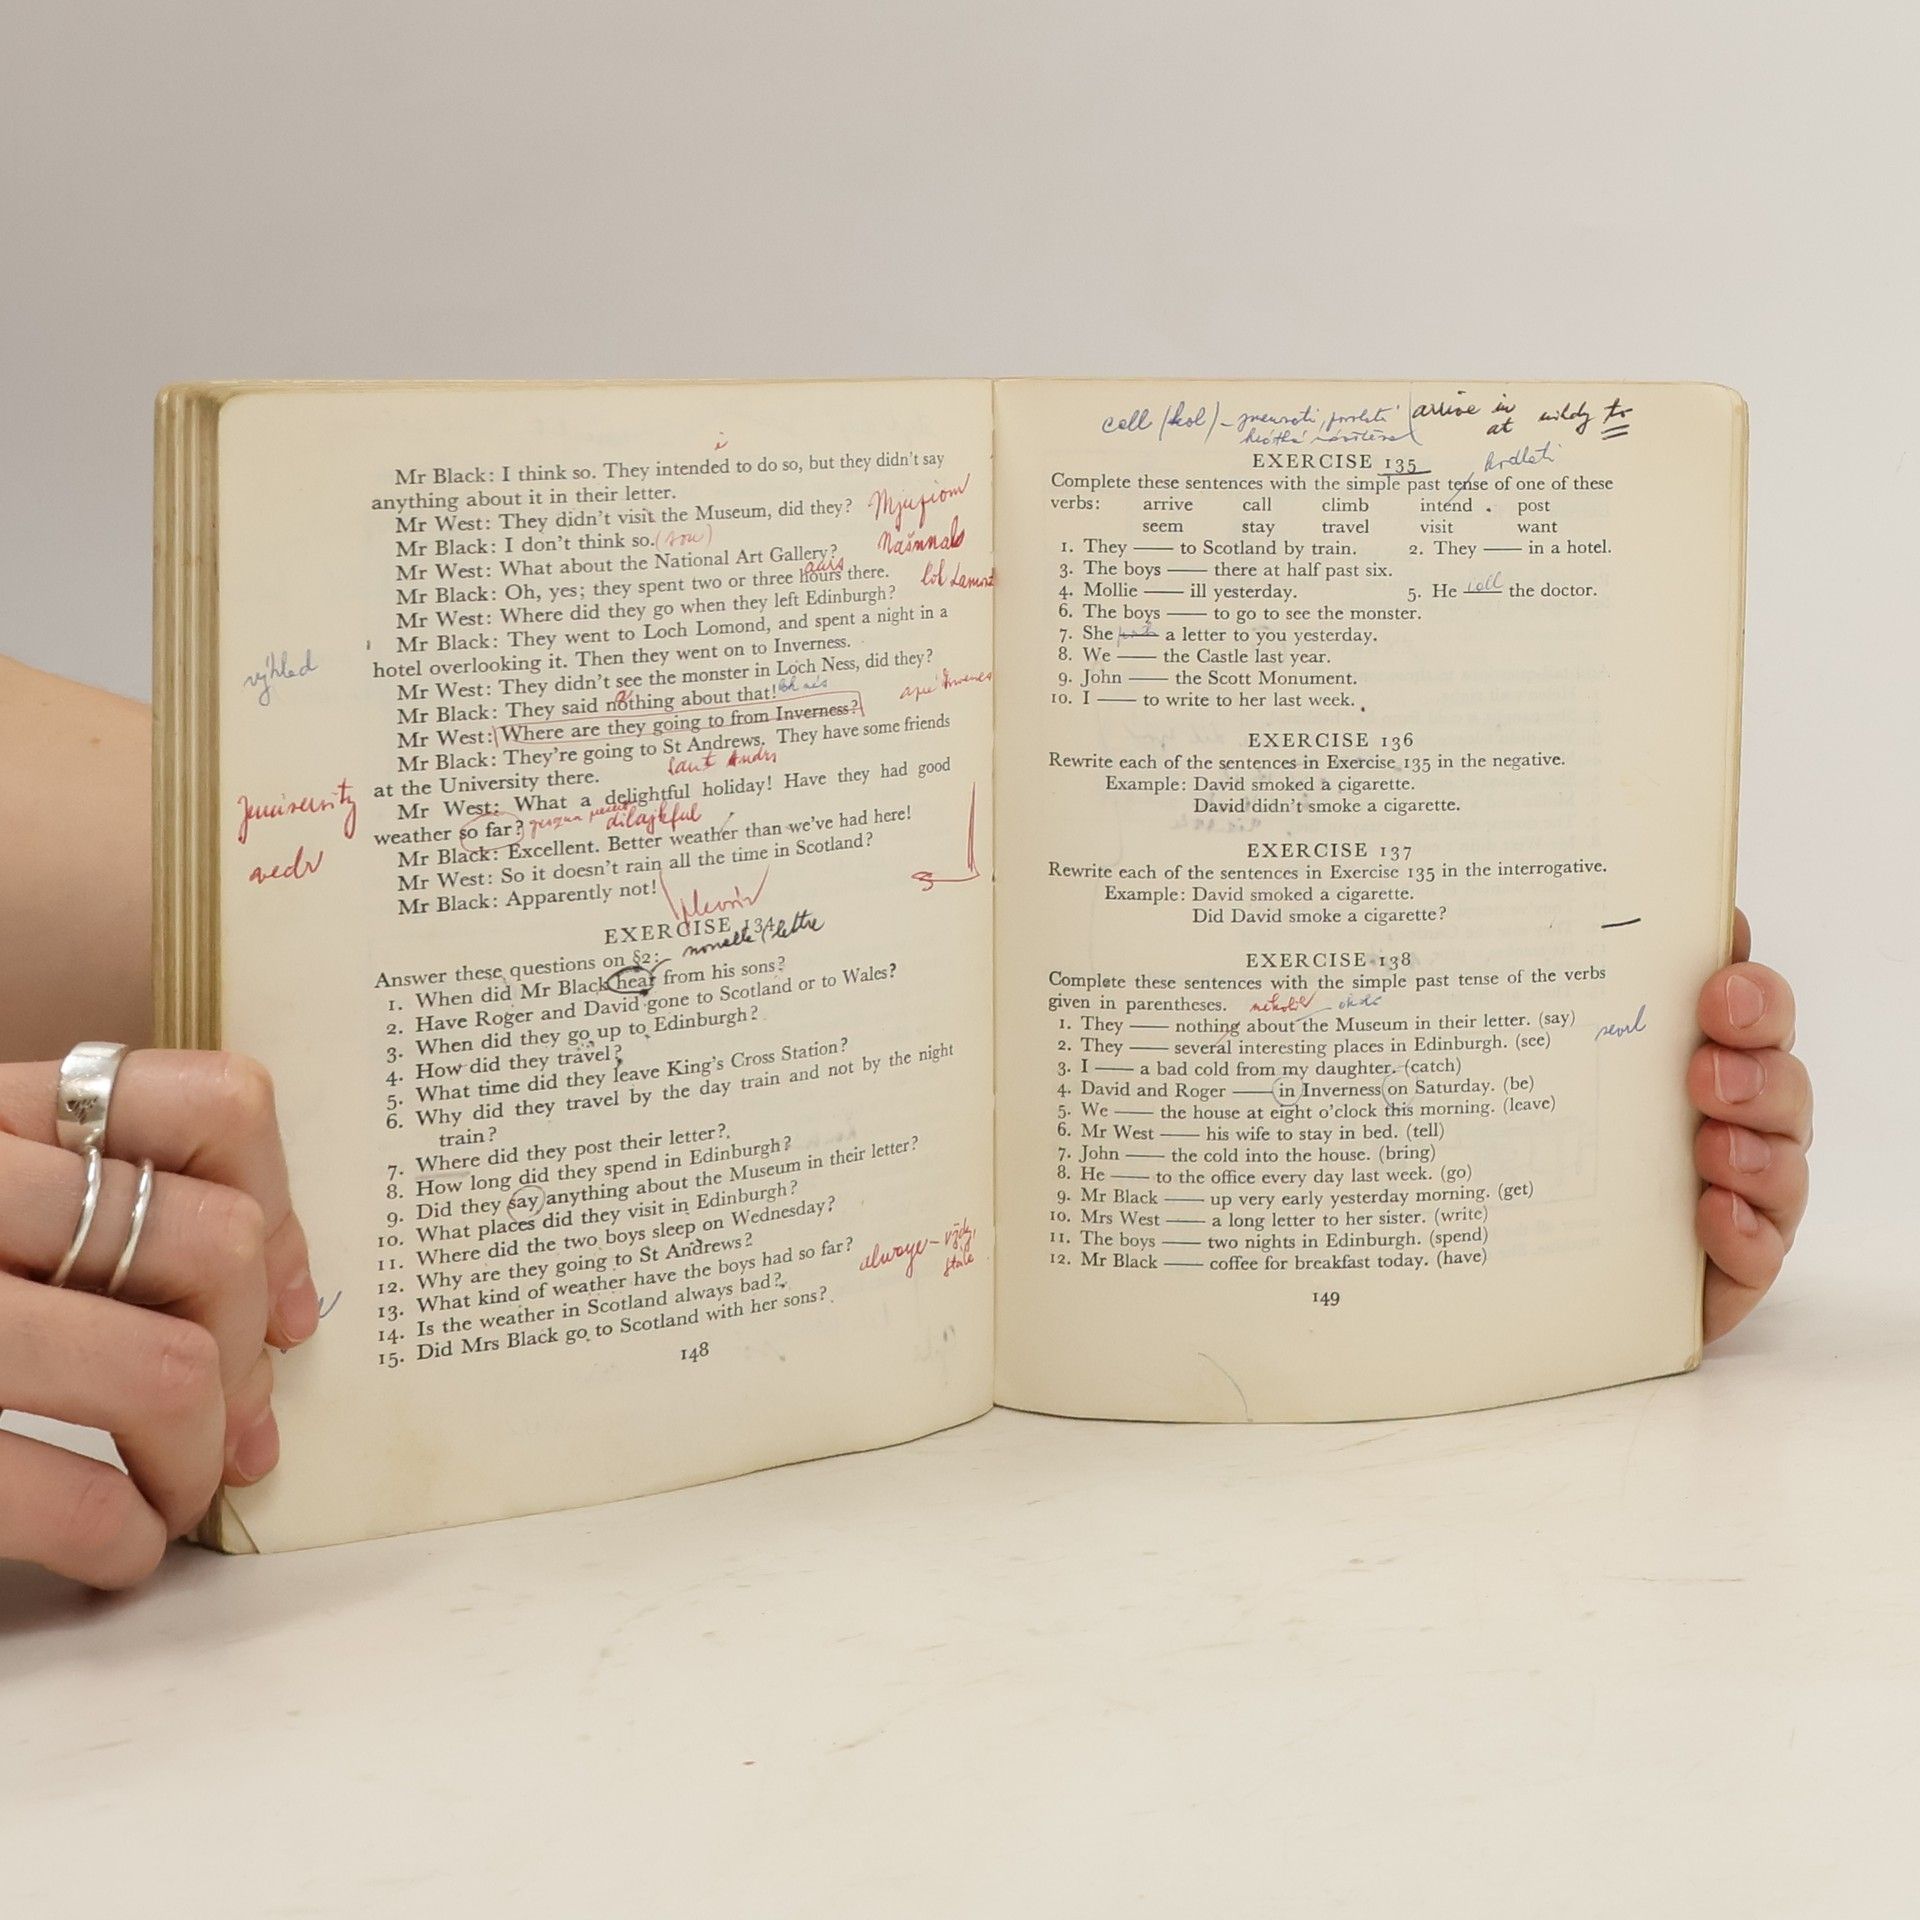 Mr Black: I think so. They intended to do so, but they didn't say
anything about it in their letter.
Mr West: They didn't visit the Museum, did they?
Mr Black: I don't think so.
Mr West: What about the National Art Gallery?
Našnnals
Mr Black: Oh, yes; they spent two or three hours there.
Mr West: Where did they go when they left Edinburgh?
Mr Black: They went to Loch Lomond, and spent a night in a
hotel overlooking it. Then they went on to Inverness.
výhled
Mr West: They didn't see the monster in Loch Ness, did they?
Mr Black: They said nothing about that!
Mr West: Where are they going to from Inverness?
Mr Black: They're going to St Andrews. They have some friends
at the University there.
Mr West: What a delightful holiday! Have they had good
dilajkful
weather so far?
Mr Black: Excellent. Better weather than we've had here!
Mr West: So it doesn't rain all the time in Scotland?
Mr Black: Apparently not!
EXERCISE 134
Answer these questions on §2:
1. When did Mr Black hear from his sons?
2. Have Roger and David gone to Scotland or to Wales?
3. When did they go up to Edinburgh?
4. How did they travel?
5. What time did they leave King's Cross Station?
6. Why did they travel by the day train and not by the night
train?
7. Where did they post their letter?
8. How long did they spend in Edinburgh?
9. Did they say anything about the Museum in their letter?
10. What places did they visit in Edinburgh?
11. Where did the two boys sleep on Wednesday?
12. Why are they going to St Andrews?
13. What kind of weather have the boys had so far?
always – vždy,
stále
14. Is the weather in Scotland always bad?
15. Did Mrs Black go to Scotland with her sons?
148
arrive in
at nikdy to
EXERCISE 135
Complete these sentences with the simple past tense of one of these
verbs: arrive call climb intend post
seem stay travel visit want
1. They —— to Scotland by train. 2. They —— in a hotel.
3. The boys —— there at half past six.
4. Mollie —— ill yesterday. 5. He call the doctor.
6. The boys —— to go to see the monster.
7. She —— a letter to you yesterday.
8. We —— the Castle last year.
9. John —— the Scott Monument.
10. I —— to write to her last week.
EXERCISE 136
Rewrite each of the sentences in Exercise 135 in the negative.
Example: David smoked a cigarette.
David didn't smoke a cigarette.
EXERCISE 137
Rewrite each of the sentences in Exercise 135 in the interrogative.
Example: David smoked a cigarette.
Did David smoke a cigarette?
EXERCISE 138
Complete these sentences with the simple past tense of the verbs
given in parentheses.
1. They —— nothing about the Museum in their letter. (say)
2. They —— several interesting places in Edinburgh. (see)
3. I —— a bad cold from my daughter. (catch)
4. David and Roger —— in Inverness on Saturday. (be)
5. We —— the house at eight o'clock this morning. (leave)
6. Mr West —— his wife to stay in bed. (tell)
7. John —— the cold into the house. (bring)
8. He —— to the office every day last week. (go)
9. Mr Black —— up very early yesterday morning. (get)
10. Mrs West —— a long letter to her sister. (write)
11. The boys —— two nights in Edinburgh. (spend)
12. Mr Black —— coffee for breakfast today. (have)
149